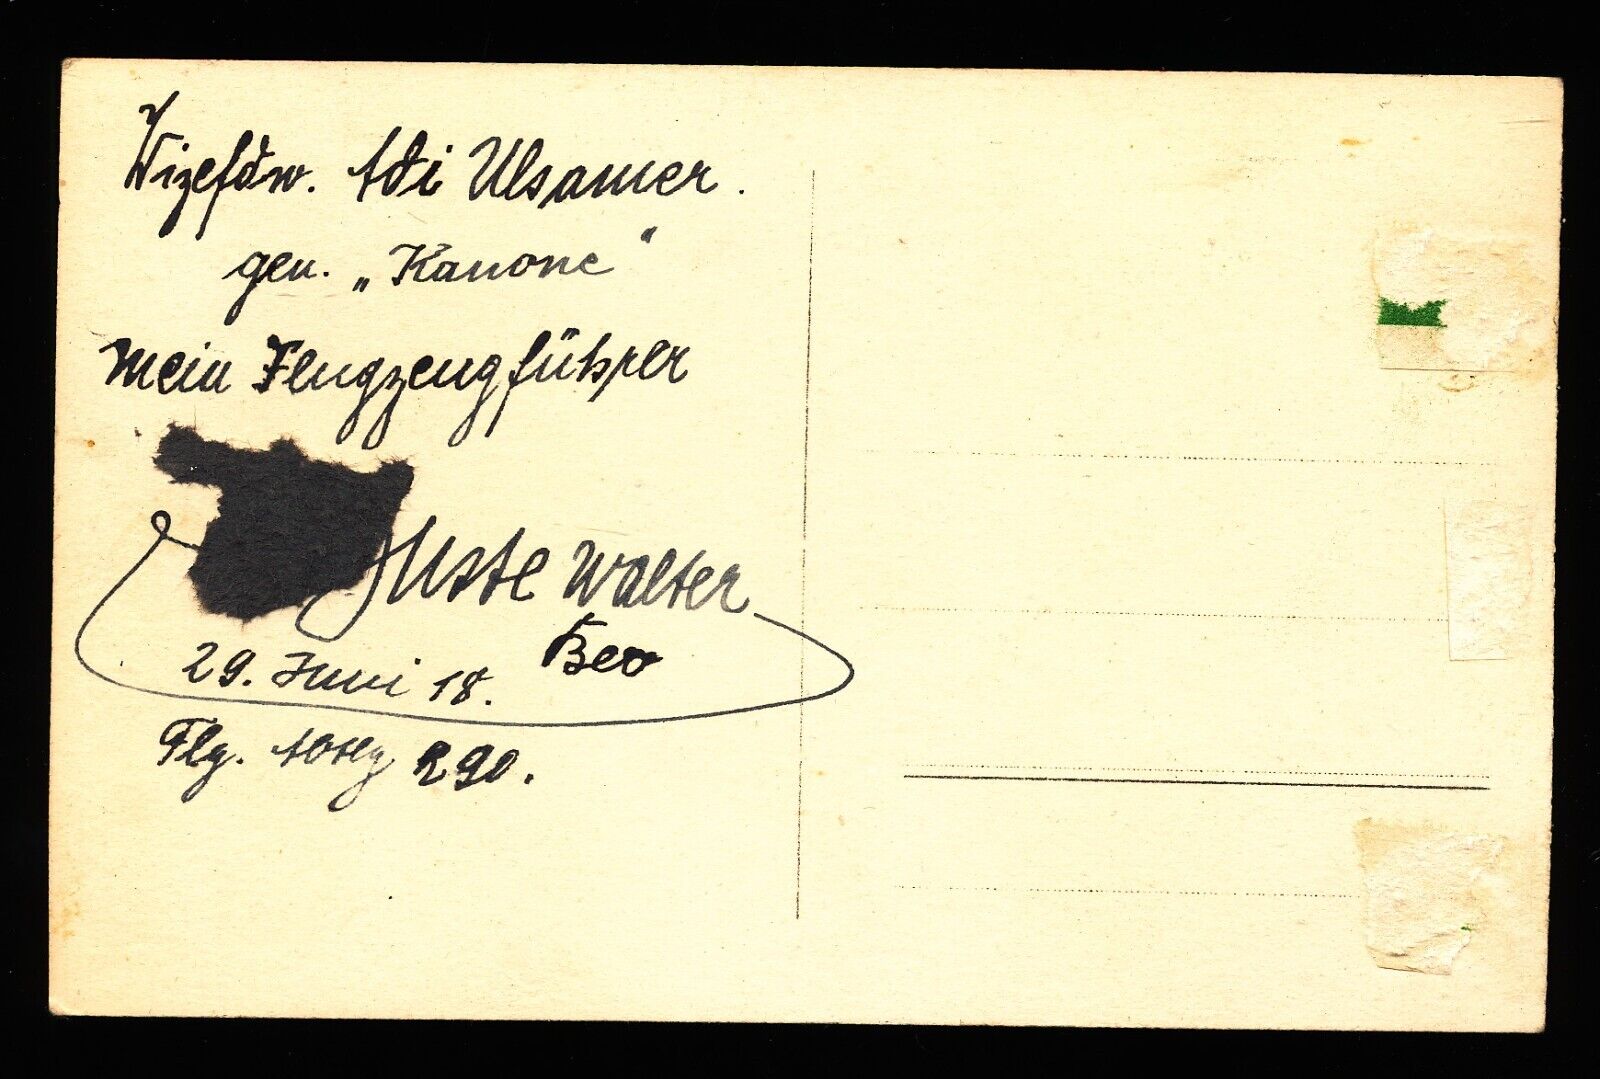 Vizefdw. Adi Ulsamer.
gen. „Kanone“
mein Flugzeugführer
Walter
Beo
29. Juni 18.
Flg. Abtlg 290.